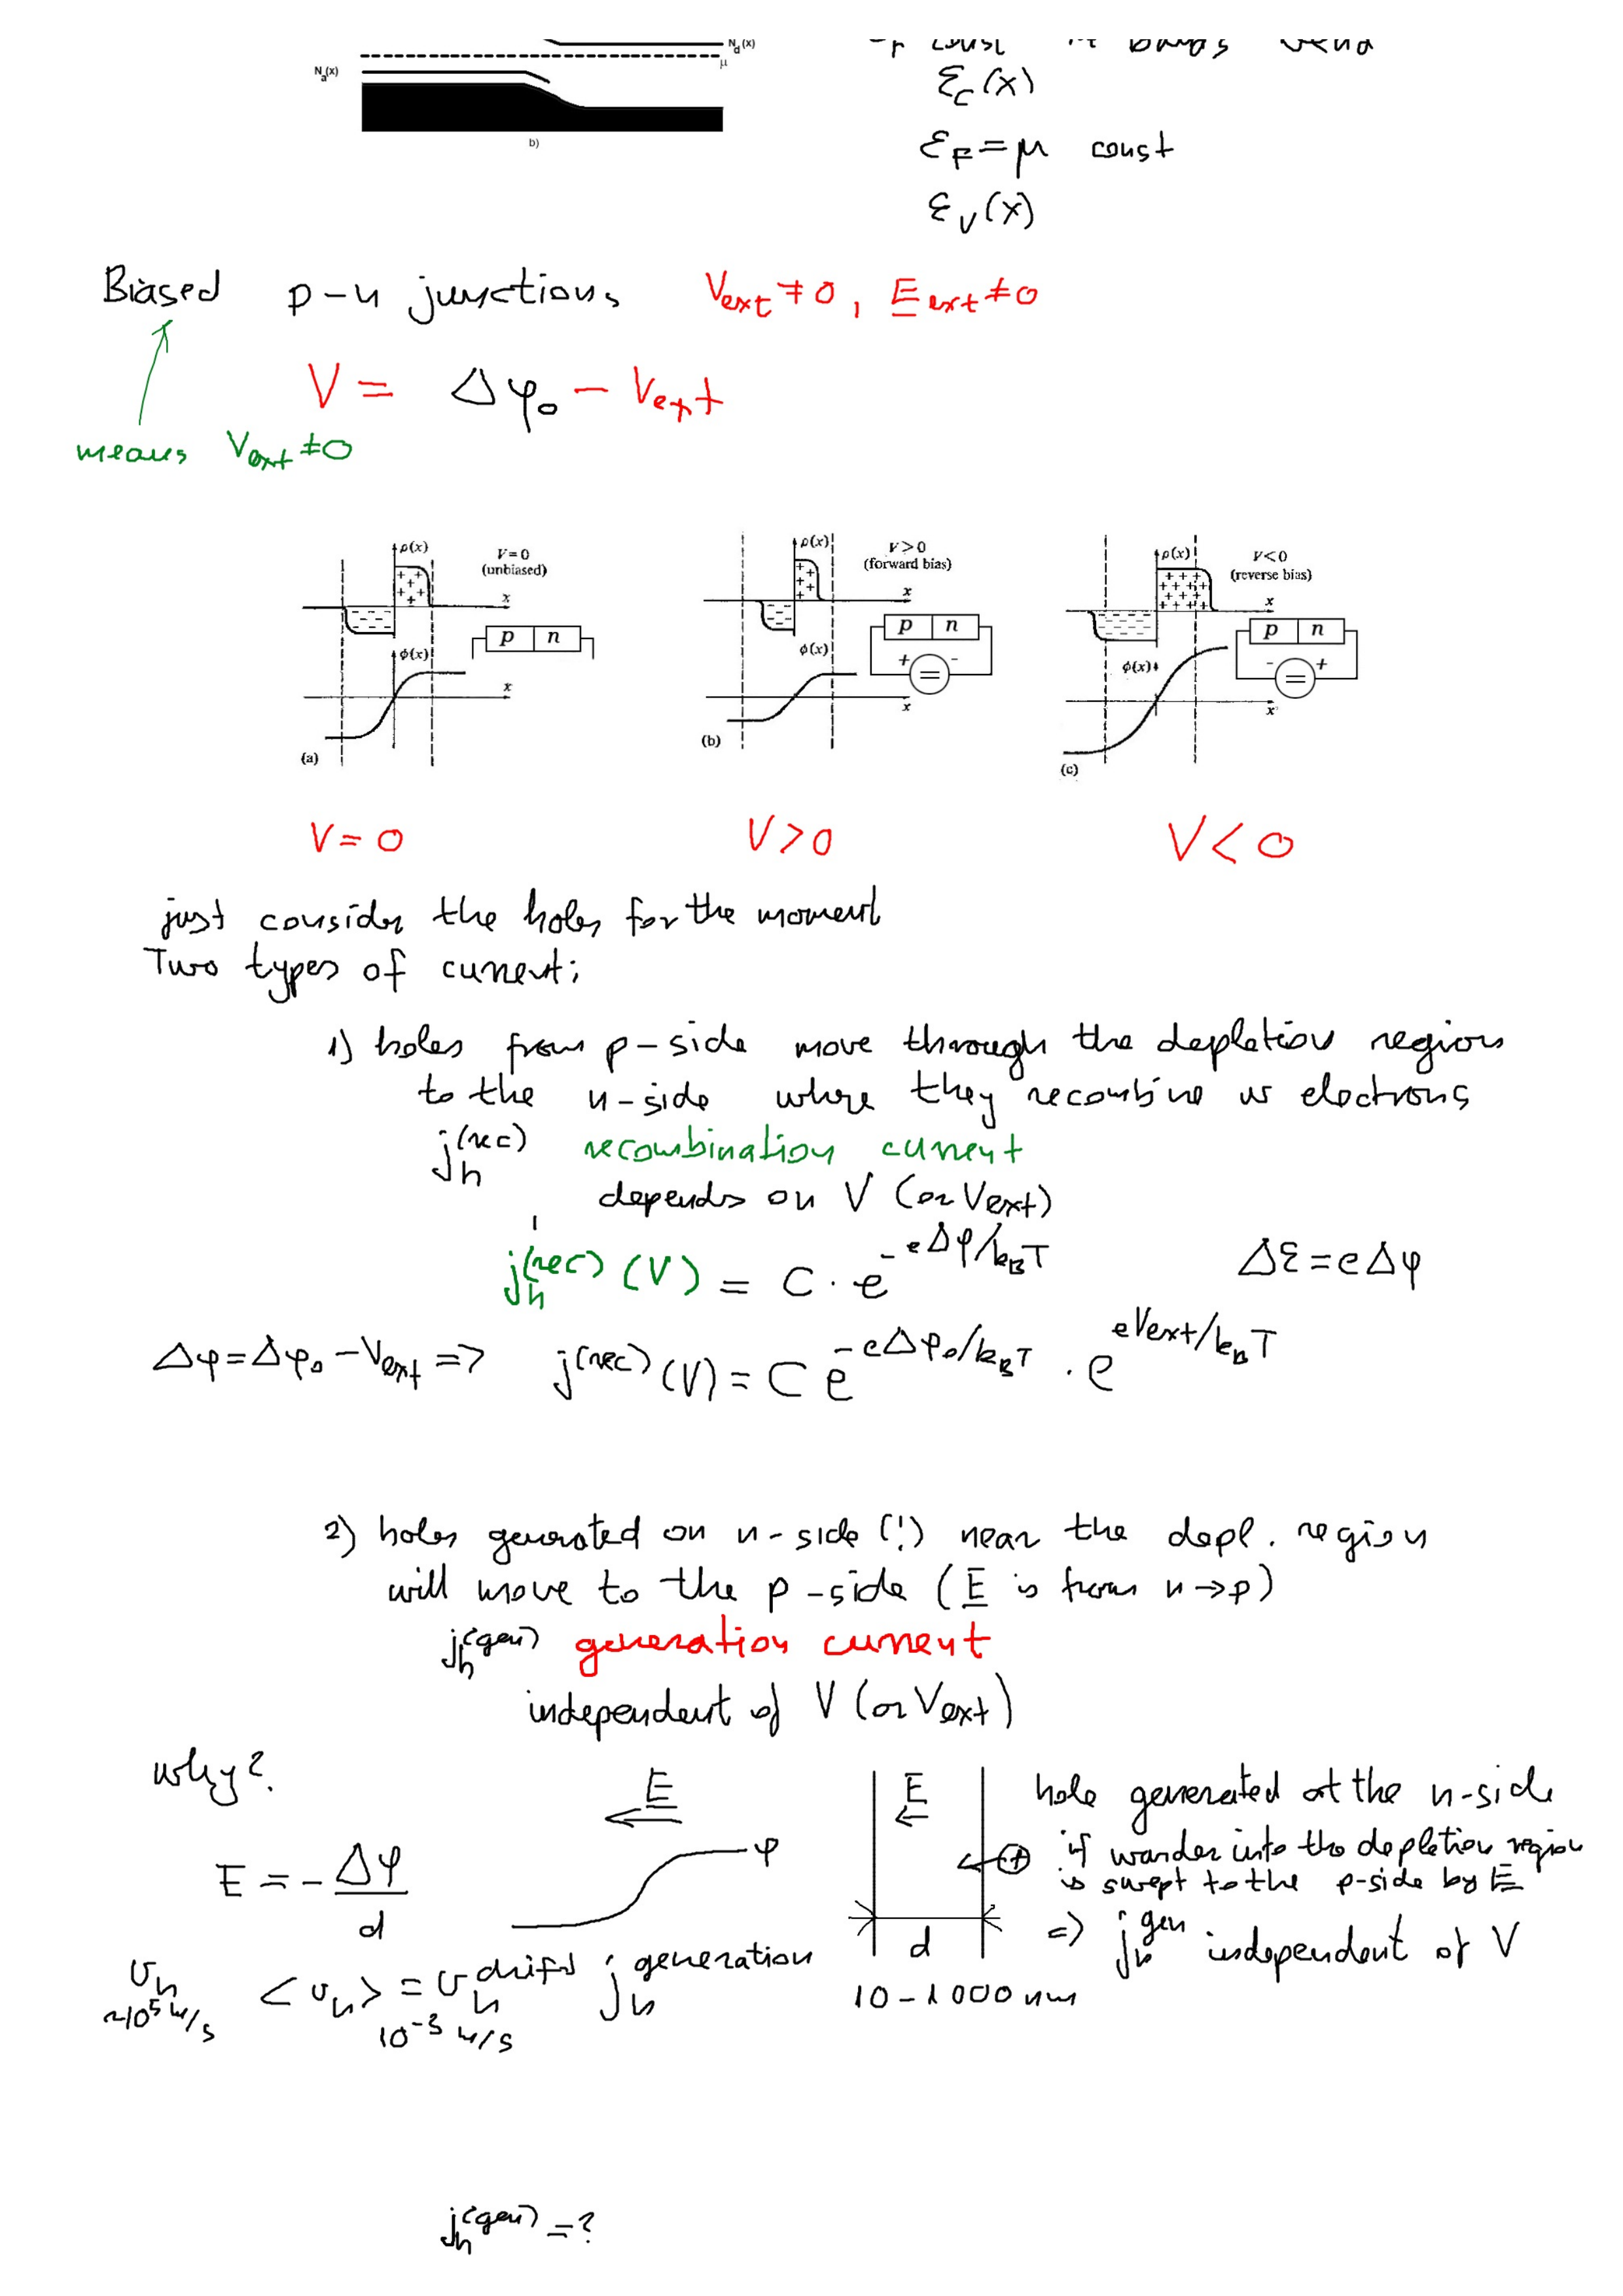 N_d(x)
μ
N_a(x)
b)
const
ε_C(x)
ε_F = μ const
ε_V(x)
Biased p-n junctions V_ext ≠ 0, E_ext ≠ 0
V = Δφ_0 - V_ext
means V_ext ≠ 0
ρ(x) V=0 (unbiased) x
p n
ϕ(x) x
(a)
ρ(x) V>0 (forward bias) x
p n
+ = -
ϕ(x) x
(b)
ρ(x) V<0 (reverse bias) x
p n
- = +
ϕ(x) x
(c)
V = 0 V > 0 V < 0
just consider the holes for the moment
Two types of current:
1) holes from p-side move through the depletion region
to the n-side where they recombine w electrons
j_h^(rec) recombination current
depends on V (or V_ext)
j_h^(rec) (V) = C · e^{-eΔφ/k_BT} Δε = eΔφ
Δφ = Δφ_0 - V_ext => j^(rec) (V) = C e^{-eΔφ_0/k_BT} · e^{eV_ext/k_BT}
2) holes generated on n-side (!) near the depl. region
will move to the p-side (E is from n → p)
j_h^(gen) generation current
independent of V (or V_ext)
why?
E
φ
E = - Δφ/d
E
+
d
10-1000 nm
hole generated at the n-side
if wander into the depletion region
is swept to the p-side by E
=> j_h^gen independent of V
v_h ~10^5 m/s <v_h> = v_h^drift j_h^generation
10^-3 m/s
j_h^(gen) = ?